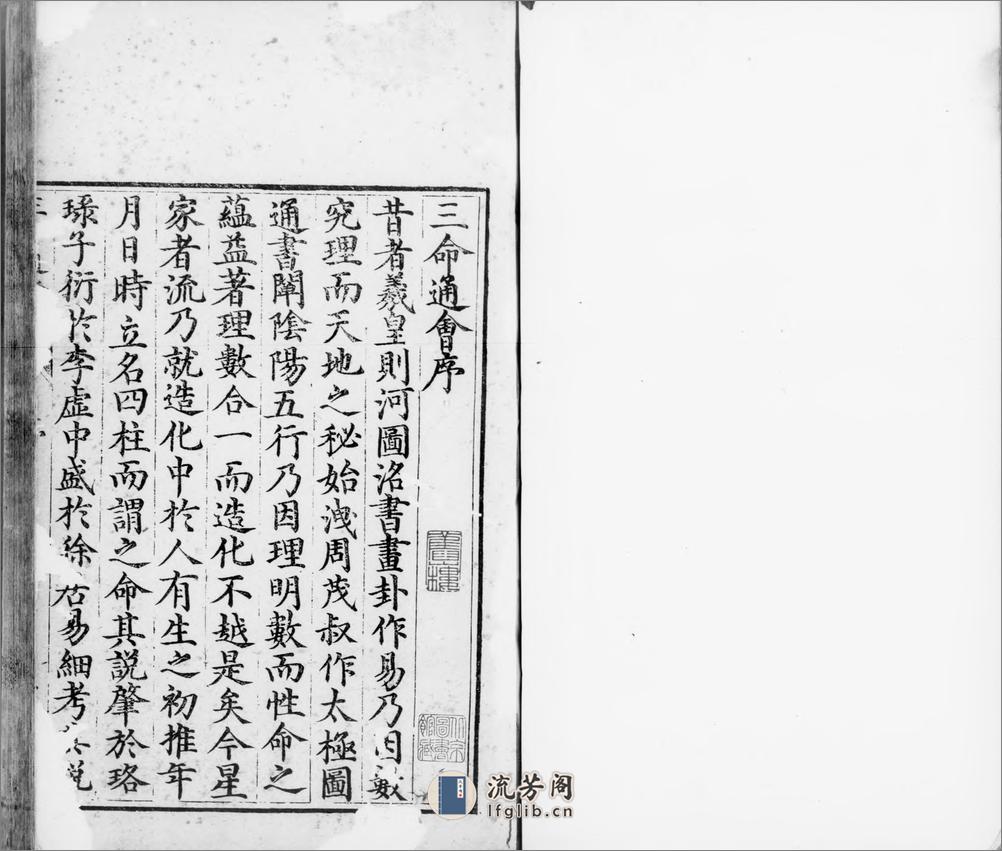 三命通會序
昔者羲皇則河圖洛書畫卦作易乃因數
究理而天地之秘始洩周茂叔作太極圖
通書闡陰陽五行乃因理明數而性命之
蘊益著理數合一而造化不越是矣今星
家者流乃就造化中於人有生之初推年
月日時立名四柱而謂之命其說肇於珞
琭子衍於李虛中盛於徐居易細考其說
書樓
北京圖書館藏
流芳阁
lfglib.cn